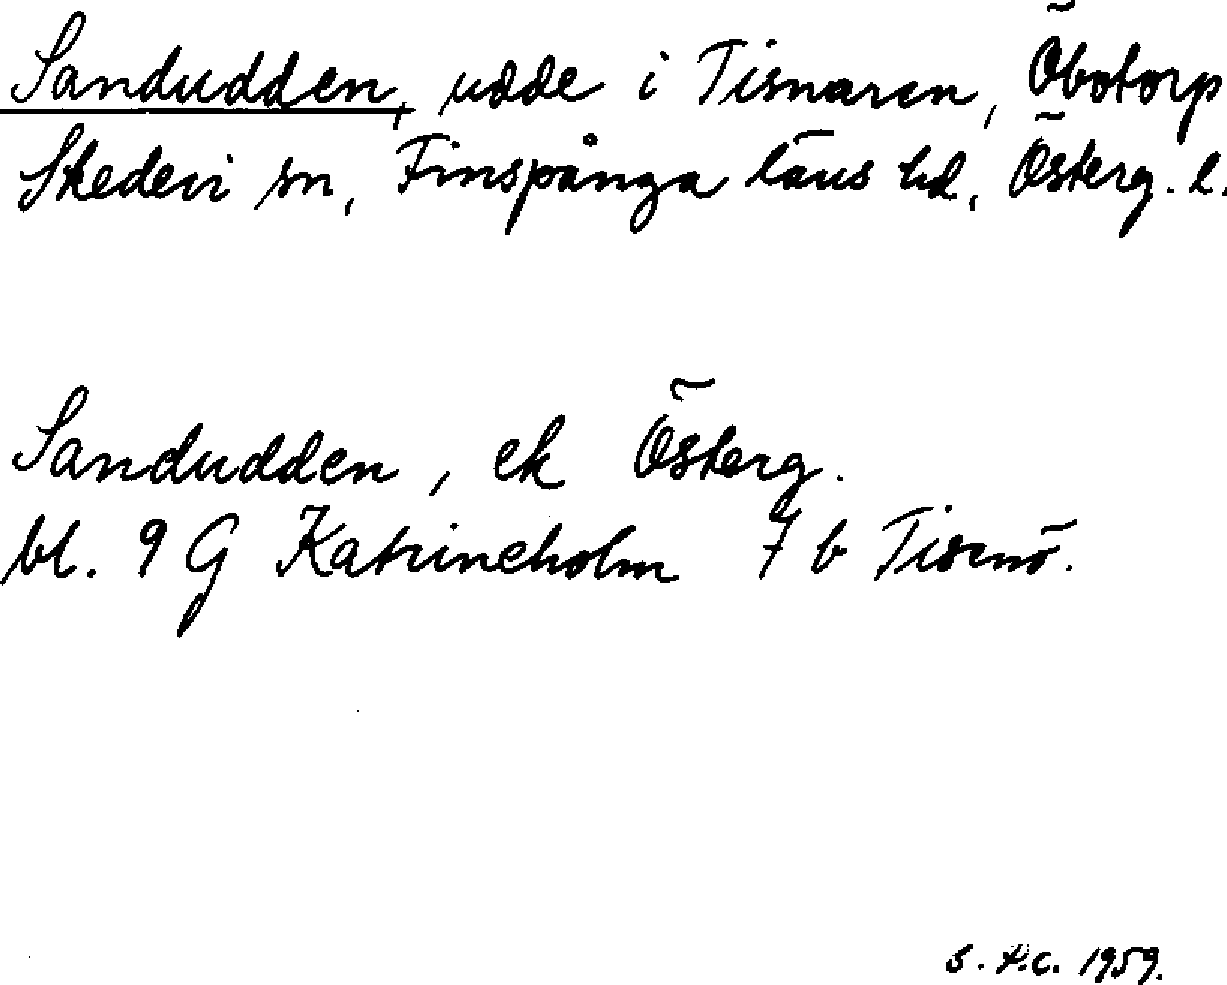 Sandudden, udde i Tisnaren, Öbotorp
Skedevi sn, Finspånga läns hd, Österg. l.
Sandudden, ek Österg.
bl. 9 G Katrineholm 7 b Tisenö.
1959.